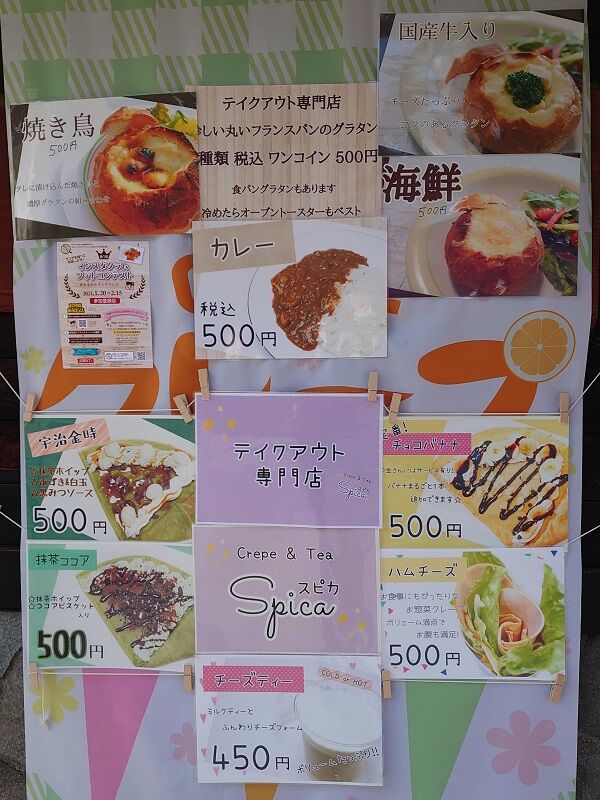 国産牛入り
チーズたっぷり
コクのあるグラタン
焼き鳥
500円
タレに漬け込んだ焼き鳥と
濃厚グラタンの組み合わせ
テイクアウト専門店
しい丸いフランスパンのグラタン
種類 税込 ワンコイン 500円
食パングラタンもあります
冷めたらオーブントースターもベスト
海鮮
500円
カレー
税込
500円
インスタグラム
フットコンテスト
2021.1.20〜2.15
参加登録店
宇治金時
☆抹茶ホイップ
☆あずき&白玉
☆黒みつソース
500円
テイクアウト
専門店
Crepe & Tea
スピカ
Spica
定番!
チョコバナナ
学生さんにはサービス有り!
バナナまるごと1本
追加できます☆
500円
抹茶ココア
☆抹茶ホイップ
☆ココアビスケット
入り
500円
Crepe & Tea
スピカ
Spica
ハムチーズ
お食事にもぴったりな
お惣菜クレープ
ボリューム満点で
お腹も満足!
500円
チーズティー
COLD or HOT
ミルクティーと
ふんわりチーズフォーム
450円
ボリュームたっぷり!!